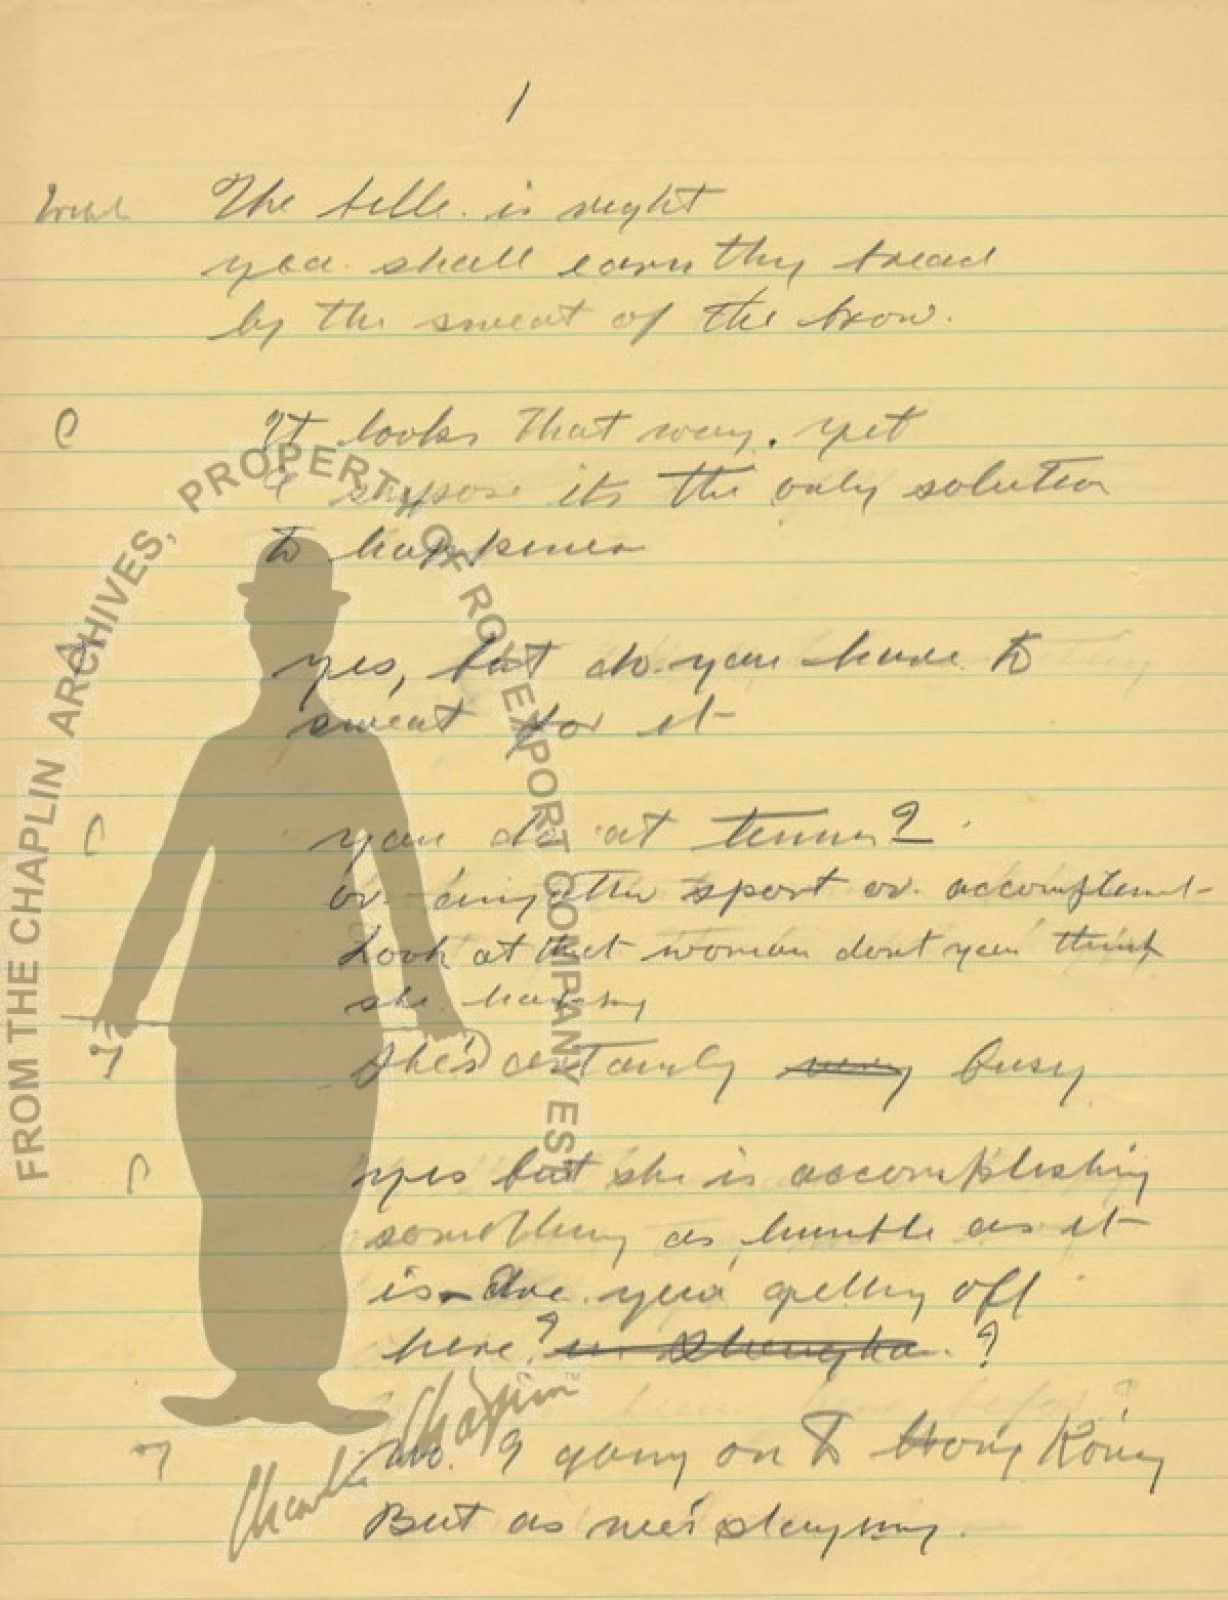 1
The bible. is right
you. shall earn thy bread
by the sweat of the brow.
C It looks that way. yet
I suppose its the only solution
to happiness
yes, but do you have to
sweat for it
C you do at tennis?
or any other sport or
Look at that woman dont you think
she happy
She's certainly very busy
C yes but she is accomplishing
something as humble as it
is. Are you getting off
here? in Shanghai. ?
no. I going on to Hong Kong
But as
FROM THE CHAPLIN ARCHIVES, PROPERTY OF ROY EXPORT COMPANY EST
Charlie Chaplin™